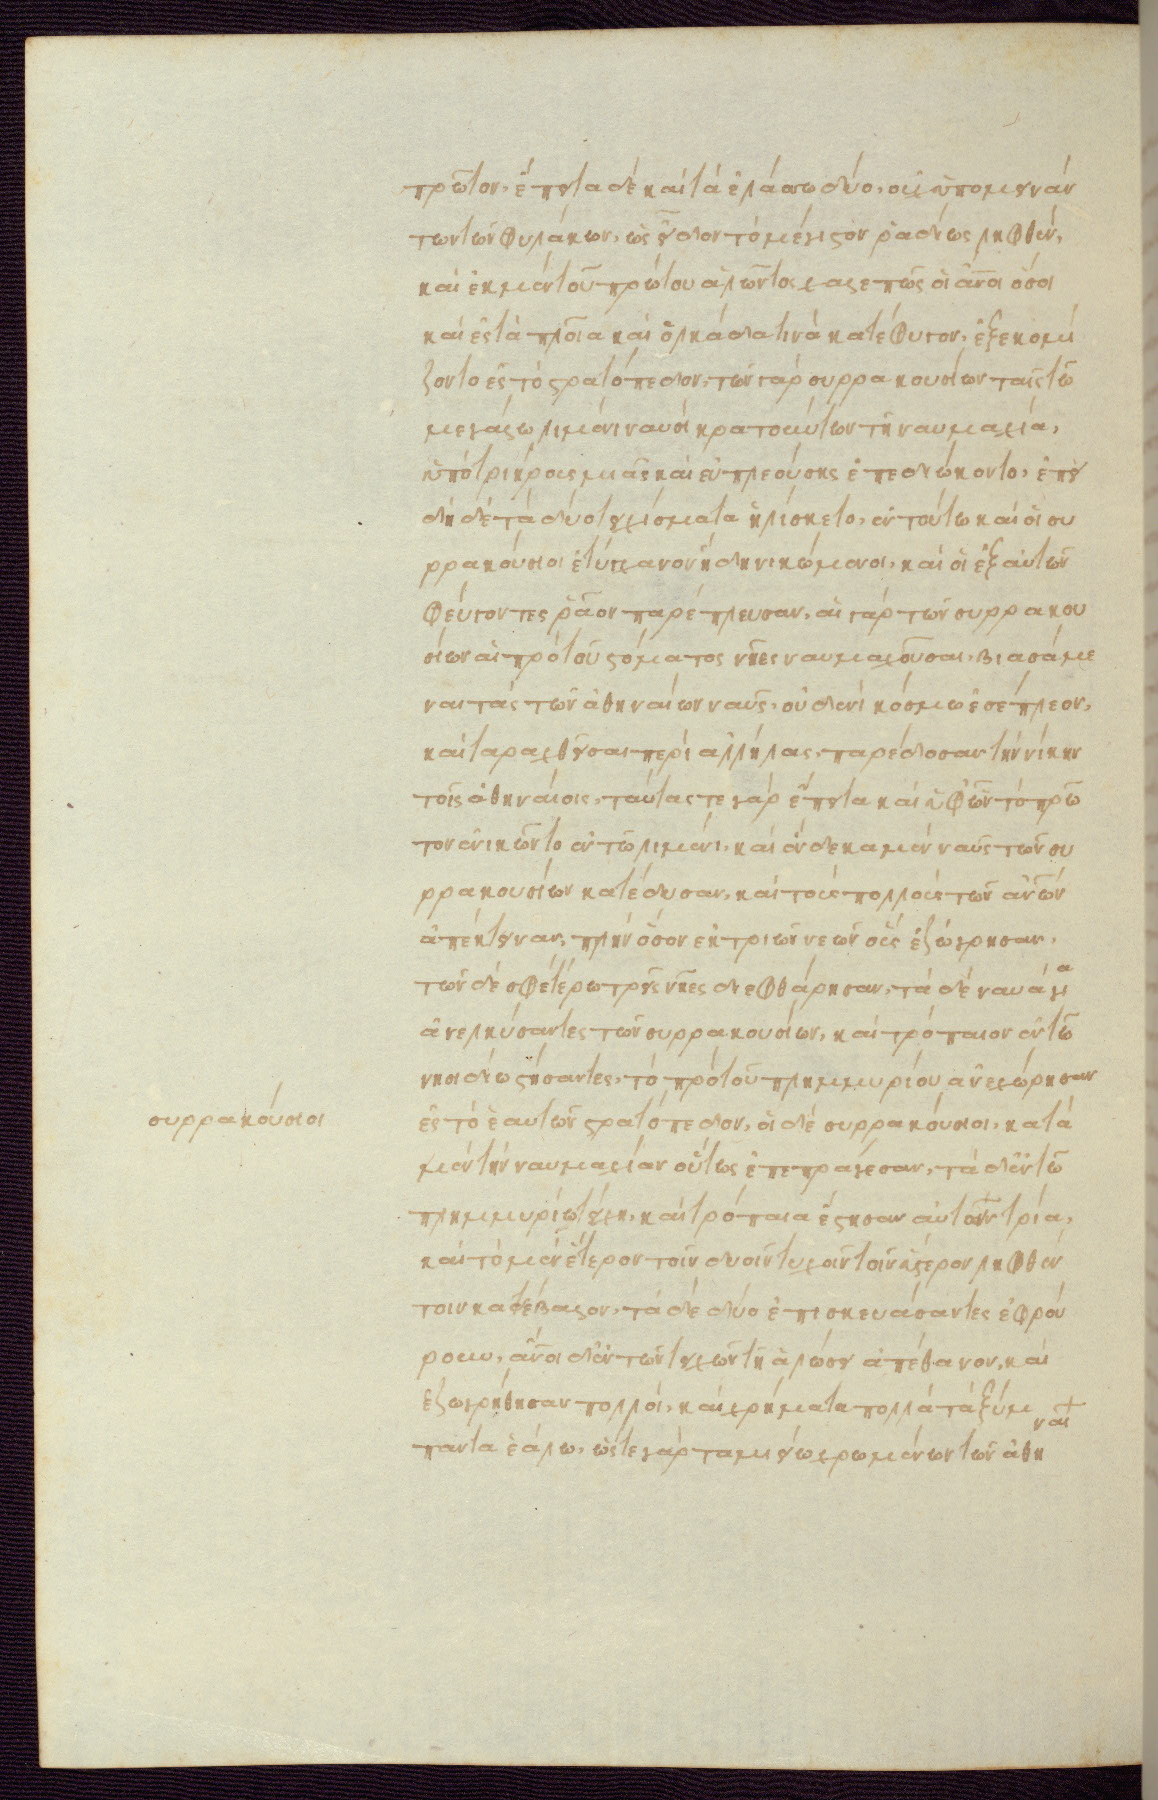 πρῶτον, ἔπειτα δὲ καὶ τὰ ἐλάσσω δύο, οὐχ ὑπομεινάν
των τῶν φυλάκων, ὡς εἶδον τὸ μέγιστον ῥαδίως ληφθέν,
καὶ ἐκ μὲν τοῦ πρώτου ἁλῶντος χαλεπῶς οἱ ἄνοι ὅσοι
καὶ ἐς τὰ πλοῖα καὶ ὁλκάδα τινὰ κατέφυγον, ἐξεκομί
ζοντο ἐς τὸ στρατόπεδον, τῶν γὰρ συρρακουσίων ταῖς ἐν τῶ
μεγάλω λιμένι ναυσὶ κρατούντων τῆ ναυμαχία,
ὑπὸ τριήρους μιᾶς καὶ εὖ πλεούσης ἐπεδιώκοντο, ἐπει
δὴ δὲ τὰ δύο τειχίσματα ἡλίσκετο, ἐν τούτω καὶ οἱ συ
ρρακούσιοι ἐτύγχανον ἤδη νικώμενοι, καὶ οἱ ἐξ αὐτῶν
φεύγοντες ῥᾶον παρέπλευσαν, αἱ γὰρ τῶν συρρακου
σίων αἱ πρὸ τοῦ στόματος νῆες ναυμαχοῦσαι, βιασάμε
ναι τὰς τῶν ἀθηναίων ναῦς, οὐδενὶ κόσμω ἐσέπλεον,
καὶ ταραχθεῖσαι περὶ ἀλλήλας, παρέδοσαν τὴν νίκην
τοῖς ἀθηναίοις, ταύτας τε γὰρ ἔπειτα καὶ ὑφ' ὧν τὸ πρῶ
τον ἐνικῶντο ἐν τῶ λιμένι, καὶ ἕνδεκα μὲν ναῦς τῶν συ
ρρακουσίων κατέδυσαν, καὶ τοὺς πολλοὺς τῶν ἀνῶν
ἀπέκτειναν, πλὴν ὅσον ἐκ τριῶν νεῶν οὓς ἐζώγρησαν,
τῶν δὲ σφετέρω τρεῖς νῆες διεφθάρησαν, τὰ δὲ ναυάγια
ἀνελκύσαντες τῶν συρρακουσίων, καὶ τρόπαιον ἐν τῶ
νησιδίω στήσαντες, τὸ πρὸ τοῦ πλημμυρίου ἀνεχώρησαν
ἐς τὸ ἑαυτῶν στρατόπεδον, οἱ δὲ συρρακούσιοι, κατὰ
συρρακούσιοι
μὲν τὴν ναυμαχίαν οὕτως ἐπεπράγεσαν, τὰ δ' ἐν τῶ
πλημμυρίω τείχη, καὶ τρόπαια ἔστησαν αὐτῶν τρία,
καὶ τὸ μὲν ἕτερον τοῖν δυοῖν τειχοῖν τοῖν ὕστερον ληφθέν
τοιν κατέβαλον, τὰ δὲ δύο ἐπισκευάσαντες ἐφρού
ρουν, ἄνοι δ' ἐν τῶν τειχῶν τῆ ἁλώσει ἀπέθανον, καὶ
ἐζωγρήθησαν πολλοί, καὶ χρήματα πολλὰ τὰ ξύμ
παντα ἑάλω, ὥστε γὰρ ταμιείω χρωμένων τῶν ἀθηναί